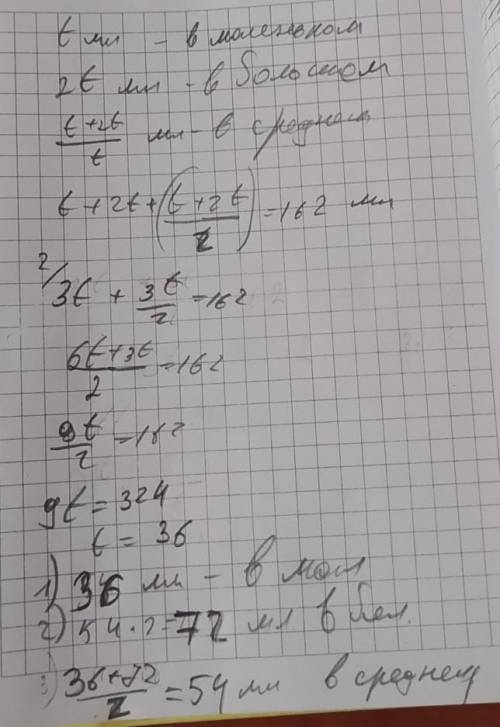 t мл - в маленьком
2t мл - в большом
(t+2t)/t мл - в среднем
t + 2t + ((t+2t)/2) = 162 мл
2/ 3t + 3t/2 = 162
(6t+3t)/2 = 162
9t/2 = 162
9t = 324
t = 36
1) 36 мл - в мал
2) 54 · 2 = 72 мл в бол.
3) (36+72)/2 = 54 мл в среднем